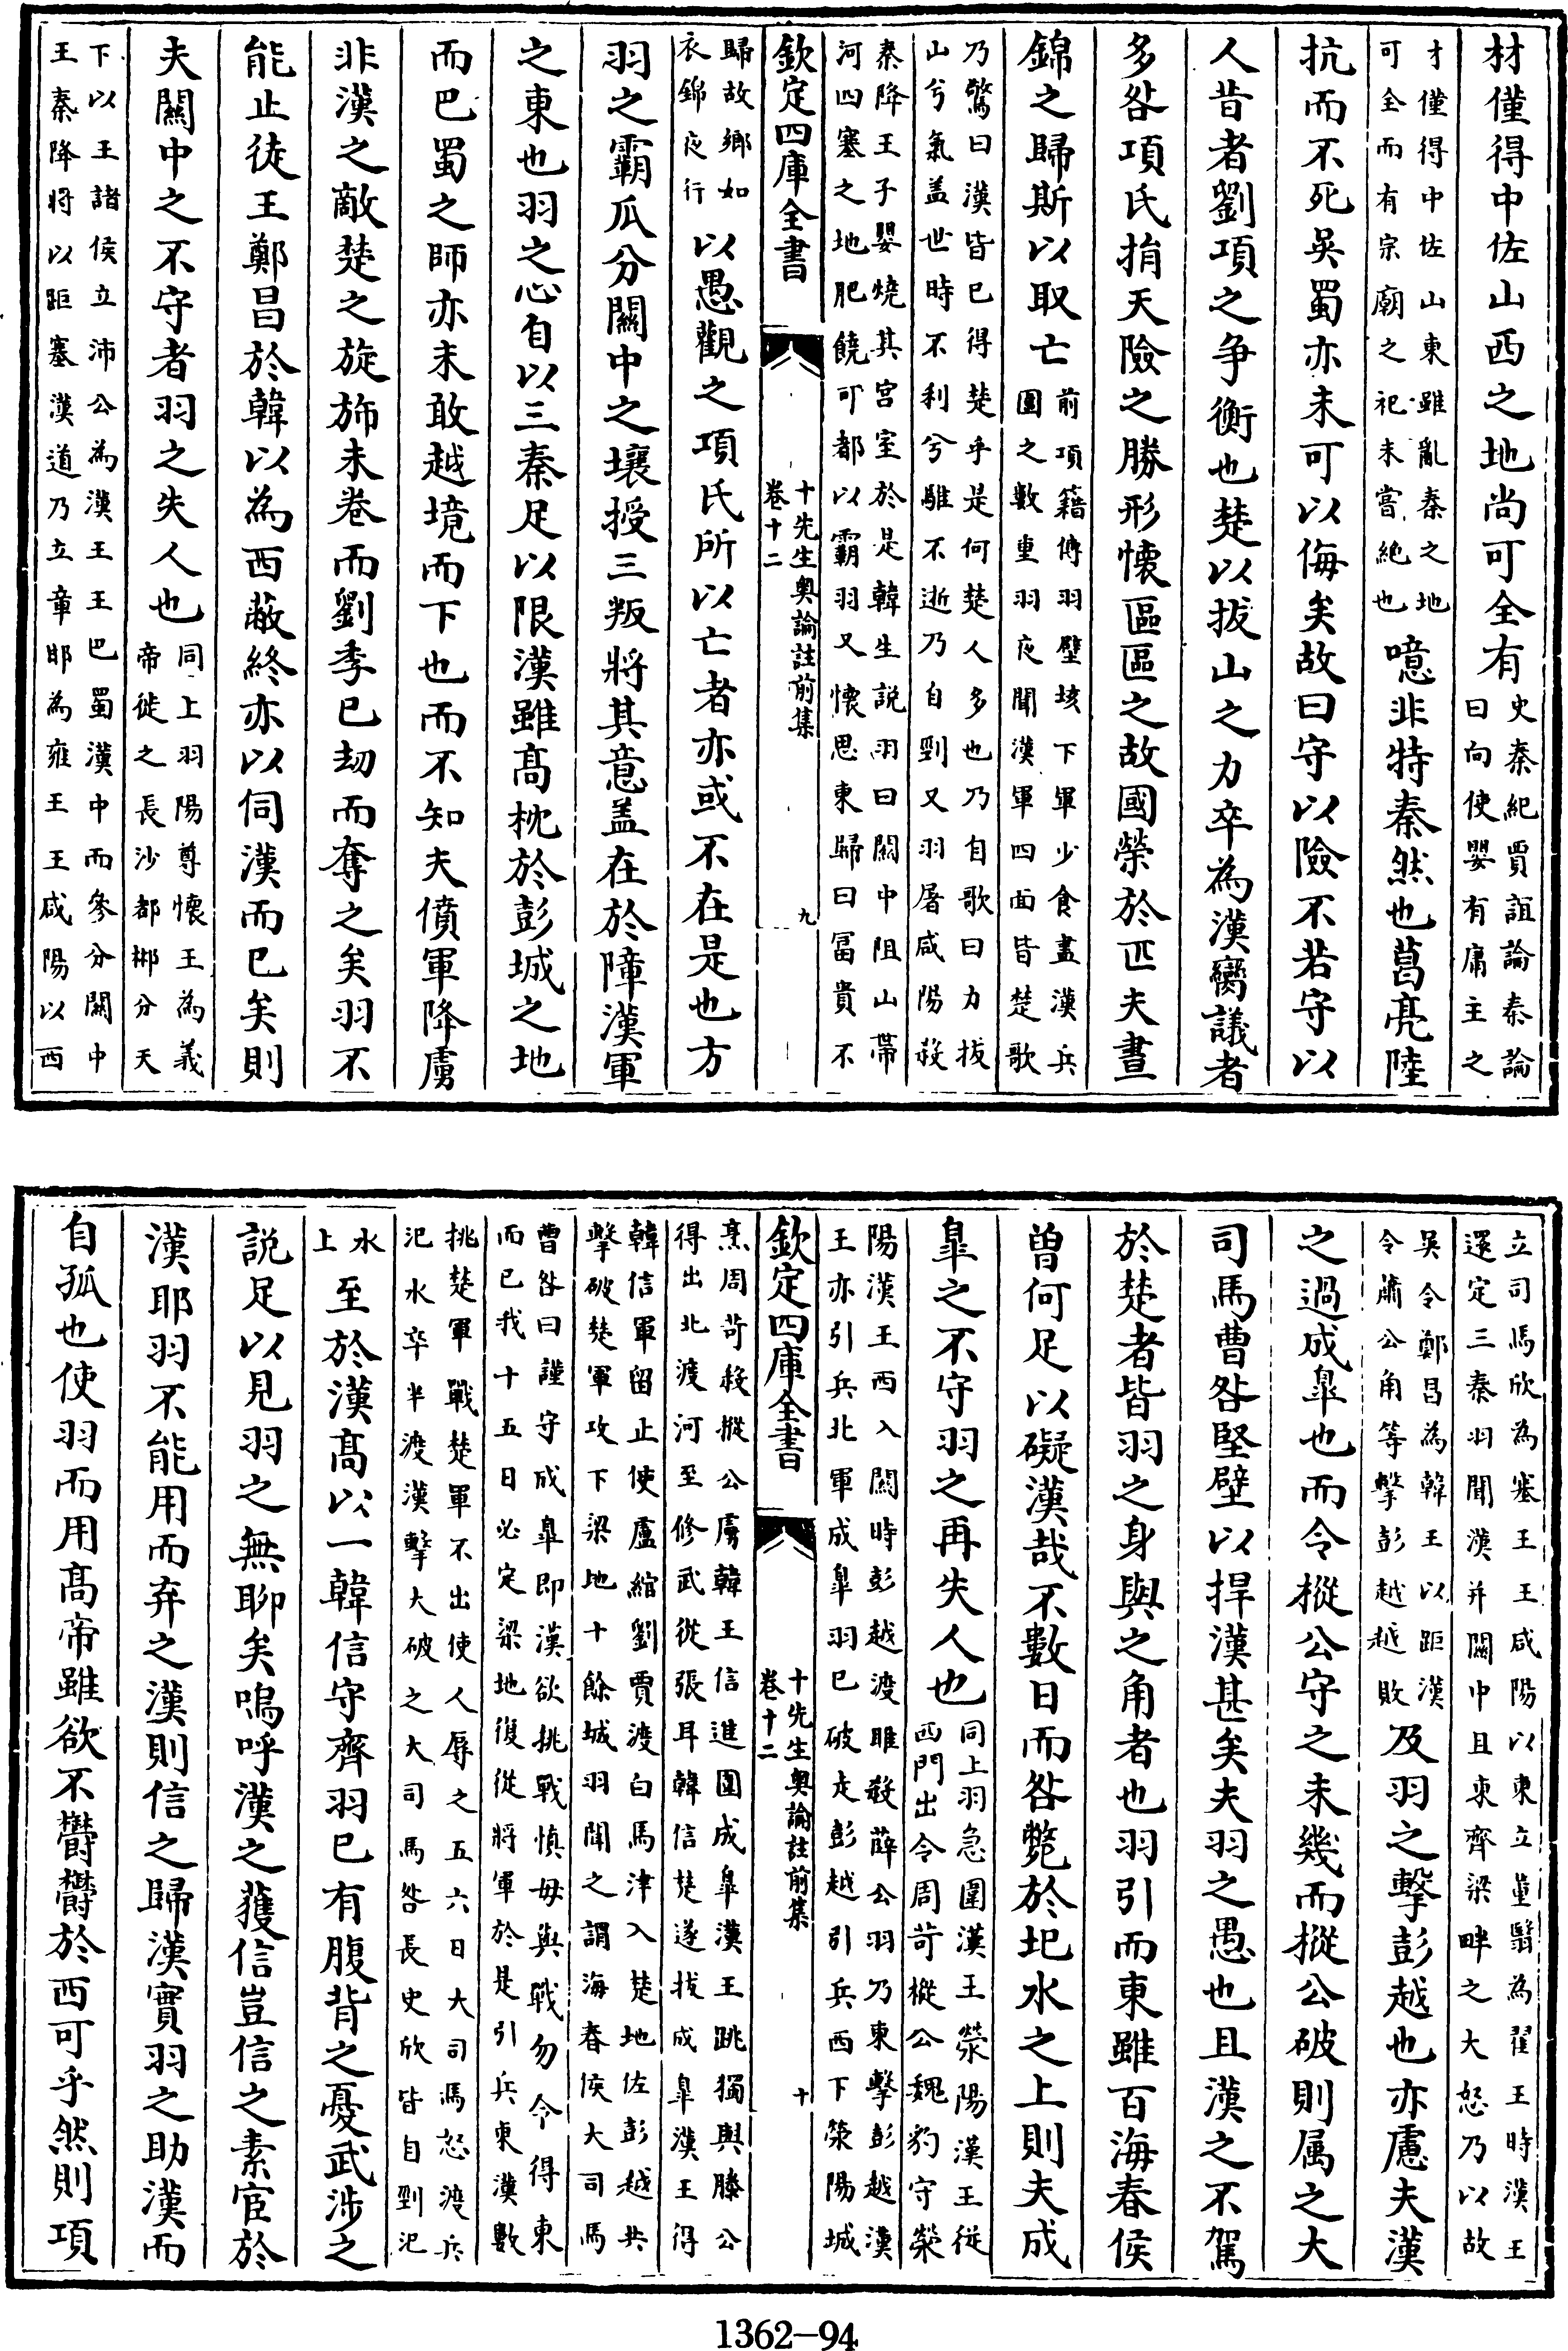 材僅得中佐山西之地尚可全有史秦紀賈誼論秦論曰向使嬰有庸主之
才僅得中佐山東雖亂秦之地可全而有宗廟之祀未嘗絶也噫非特秦然也葛亮陸
抗而不死吳蜀亦未可以侮矣故曰守以險不若守以
人昔者劉項之争衡也楚以拔山之力卒為漢臠議者
多咎項氏捐天險之勝形懷區區之故國榮於匹夫晝
錦之歸斯以取亡前項籍傳羽壁垓下軍少食盡漢兵圍之數重羽夜聞漢軍四面皆楚歌
乃驚曰漢皆已得楚乎是何楚人多也乃自歌曰力拔山兮氣盖世時不利兮騅不逝乃自剄又羽屠咸陽殺
秦降王子嬰燒其宫室於是韓生説羽曰關中阻山帶河四塞之地肥饒可都以霸羽又懷思東歸曰富貴不
欽定四庫全書
十先生奥論註前集
卷十二
九
歸故鄉如衣錦夜行以愚觀之項氏所以亡者亦或不在是也方
羽之霸瓜分關中之壤授三叛將其意盖在於障漢軍
之東也羽之心自以三秦足以限漢雖髙枕於彭城之地
而巴蜀之師亦未敢越境而下也而不知夫僨軍降虜
非漢之敵楚之旋斾未卷而劉季已刼而奪之矣羽不
能止徒王鄭昌於韓以為西蔽終亦以伺漢而已矣則
夫關中之不守者羽之失人也同上羽陽尊懷王為義帝徙之長沙都郴分天
下以王諸侯立沛公為漢王王巴蜀漢中而參分關中王秦降將以距塞漢道乃立章邯為雍王王咸陽以西
立司馬欣為塞王王咸陽以東立董翳為翟王時漢王還定三秦羽聞漢并關中且東齊梁畔之大怒乃以故
吳令鄭昌為韓王以距漢令蕭公角等擊彭越越敗及羽之擊彭越也亦慮夫漢
之過成臯也而令樅公守之未幾而樅公破則属之大
司馬曹咎堅壁以捍漢甚矣夫羽之愚也且漢之不駕
於楚者皆羽之身與之角者也羽引而東雖百海春侯
曽何足以礙漢哉不數日而咎斃於圯水之上則夫成
臯之不守羽之再失人也同上羽急圍漢王滎陽漢王從西門出令周苛樅公魏豹守滎
陽漢王西入關時彭越渡睢殺薛公羽乃東擊彭越漢王亦引兵北軍成臯羽已破走彭越引兵西下滎陽城
欽定四庫全書
十先生奥論註前集
卷十二
十
烹周苛殺樅公虜韓王信進圍成臯漢王跳獨與滕公得出北渡河至修武從張耳韓信楚遂拔成臯漢王得
韓信軍留止使盧綰劉賈渡白馬津入楚地佐彭越共擊破楚軍攻下梁地十餘城羽聞之謂海春侯大司馬
曹咎曰謹守成臯即漢欲挑戰慎毋與戰勿令得東而已我十五日必定梁地復從將軍於是引兵東漢數
挑楚軍戰楚軍不出使人辱之五六日大司馬怒渡兵汜水卒半渡漢擊大破之大司馬咎長史欣皆自剄汜
水上至於漢髙以一韓信守齊羽已有腹背之憂武涉之
説足以見羽之無聊矣嗚呼漢之獲信豈信之素宦於
漢耶羽不能用而弃之漢則信之歸漢實羽之助漢而
自孤也使羽而用髙帝雖欲不鬱鬱於西可乎然則項
1362-94